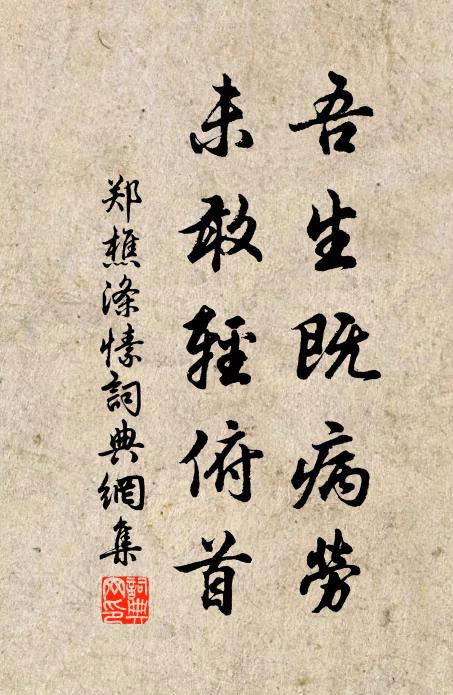 吾生既病劳
未敢轻俯首
郑樵涤愫詞典網集
詞典网印